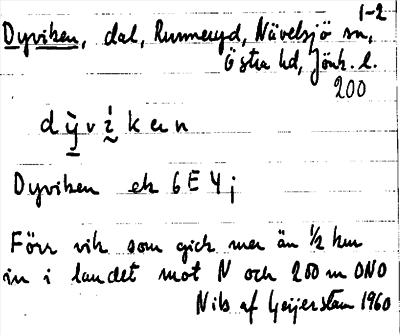 1-2
Dyviken, dal, Runneryd, Nävelsjö sn,
Östra hd, Jönk. l.
200
dỳvi̊ken
Dyviken ek 6E4j
Förr vik som gick mer än ½ km
in i landet mot N och 200 m ONO
Nils af Geijerstam 1960